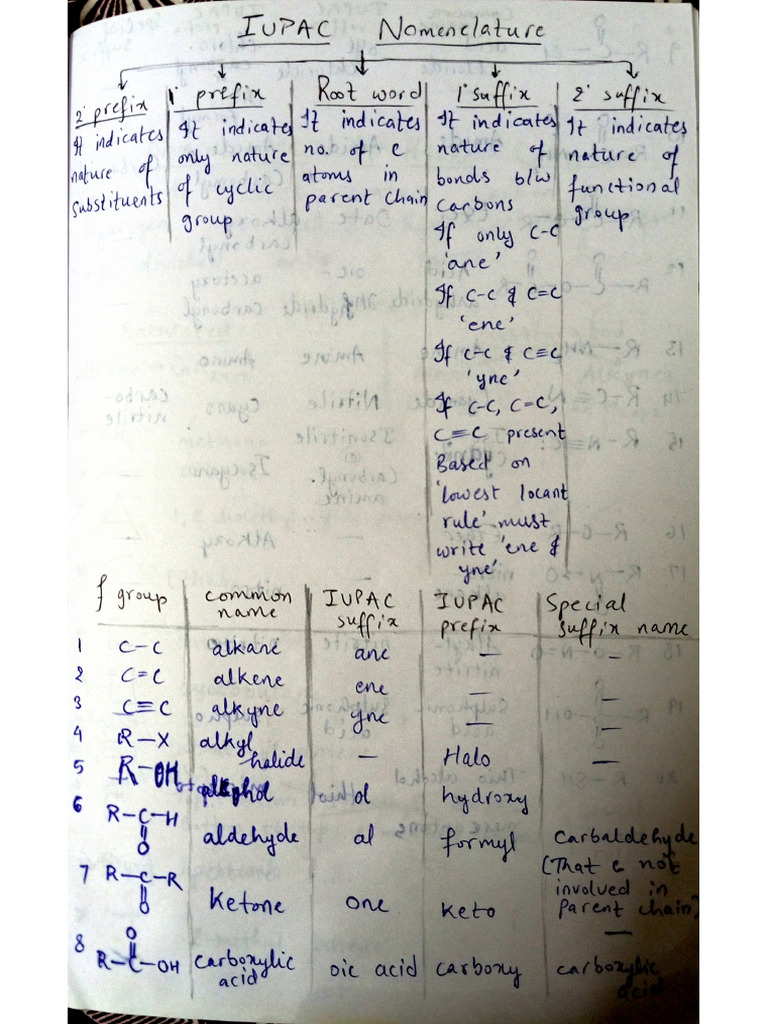 IUPAC Nomenclature
2° prefix
It indicates
nature of
substituents
1° prefix
It indicates
only nature
of cyclic
group
Root word
It indicates
no. of c
atoms in
parent chain
1° suffix
It indicates
nature of
bonds b/w
carbons
If only C-C
'ane'
If C-C & C=C
'ene'
If C-C & C≡C
'yne'
If C-C, C=C,
C≡C present
Based on
'lowest locant
rule' must
write 'ene &
yne'
2° suffix
It indicates
nature of
functional
group
f group | common name | IUPAC suffix | IUPAC prefix | Special suffix name
1 C-C alkane ane — —
2 C=C alkene ene — —
3 C≡C alkyne yne — —
4 R-X alkyl halide — Halo —
5 R-OH alcohol ol hydroxy
6 R-C-H
O
aldehyde al formyl carbaldehyde
(That c not
involved in
parent chain)
7 R-C-R
O
Ketone one keto —
8 O
R-C-OH carboxylic acid oic acid carboxy carboxylic acid